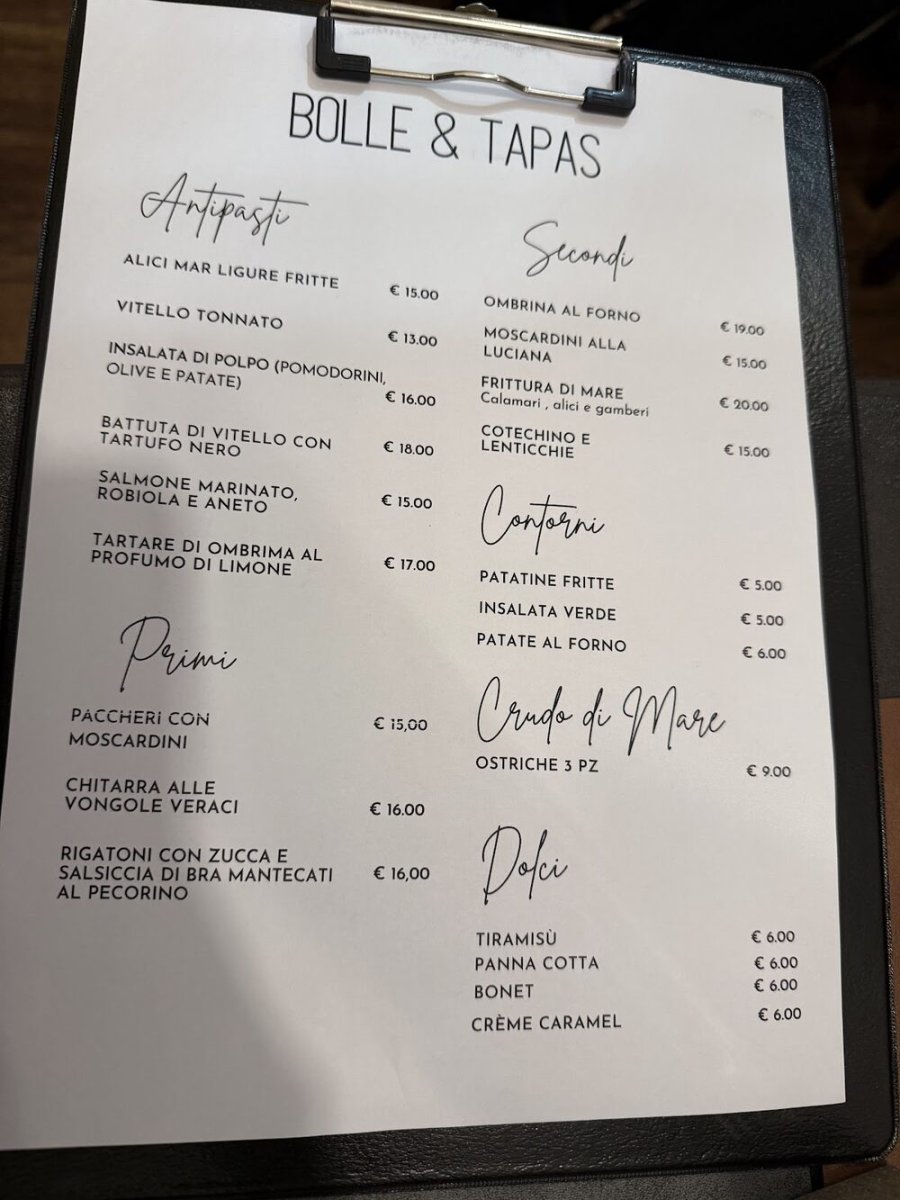 BOLLE & TAPAS
Antipasti
ALICI MAR LIGURE FRITTE € 15.00
VITELLO TONNATO € 13.00
INSALATA DI POLPO (POMODORINI,
OLIVE E PATATE) € 16.00
BATTUTA DI VITELLO CON
TARTUFO NERO € 18.00
SALMONE MARINATO,
ROBIOLA E ANETO € 15.00
TARTARE DI OMBRIMA AL
PROFUMO DI LIMONE € 17.00
Primi
PACCHERI CON € 15,00
MOSCARDINI
CHITARRA ALLE
VONGOLE VERACI € 16.00
RIGATONI CON ZUCCA E
SALSICCIA DI BRA MANTECATI € 16,00
AL PECORINO
Secondi
OMBRINA AL FORNO € 19.00
MOSCARDINI ALLA
LUCIANA € 15.00
FRITTURA DI MARE € 20.00
Calamari , alici e gamberi
COTECHINO E
LENTICCHIE € 15.00
Contorni
PATATINE FRITTE € 5.00
INSALATA VERDE € 5.00
PATATE AL FORNO € 6.00
Crudo di Mare
OSTRICHE 3 PZ € 9.00
Dolci
TIRAMISÙ € 6.00
PANNA COTTA € 6.00
BONET € 6.00
CRÈME CARAMEL € 6.00